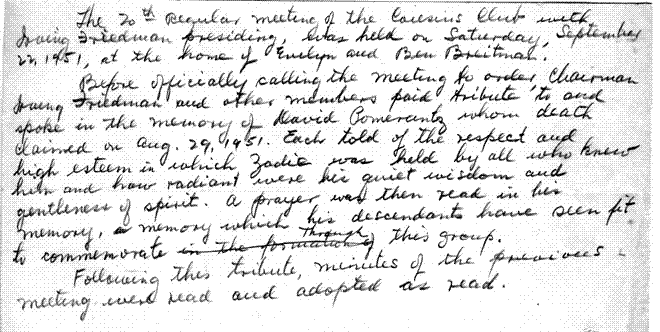 The 20th regular meeting of the Cousins Club with
Irving Friedman presiding, was held on Saturday, September
22, 1951, at the home of Evelyn and Ben Breitman.
Before officially calling the meeting to order, Chairman
Irving Friedman and other members paid tribute to and
spoke in the memory of David Pomerantz whom death
claimed on Aug. 29, 1951. Each told of the respect and
high esteem in which Zadie was held by all who knew
him and how radiant were his quiet wisdom and
gentleness of spirit. A prayer was then read in his
memory, a memory which his descendants have seen fit
to commemorate in the formation of through this group.
Following this tribute, minutes of the previous
meeting were read and adopted as read.